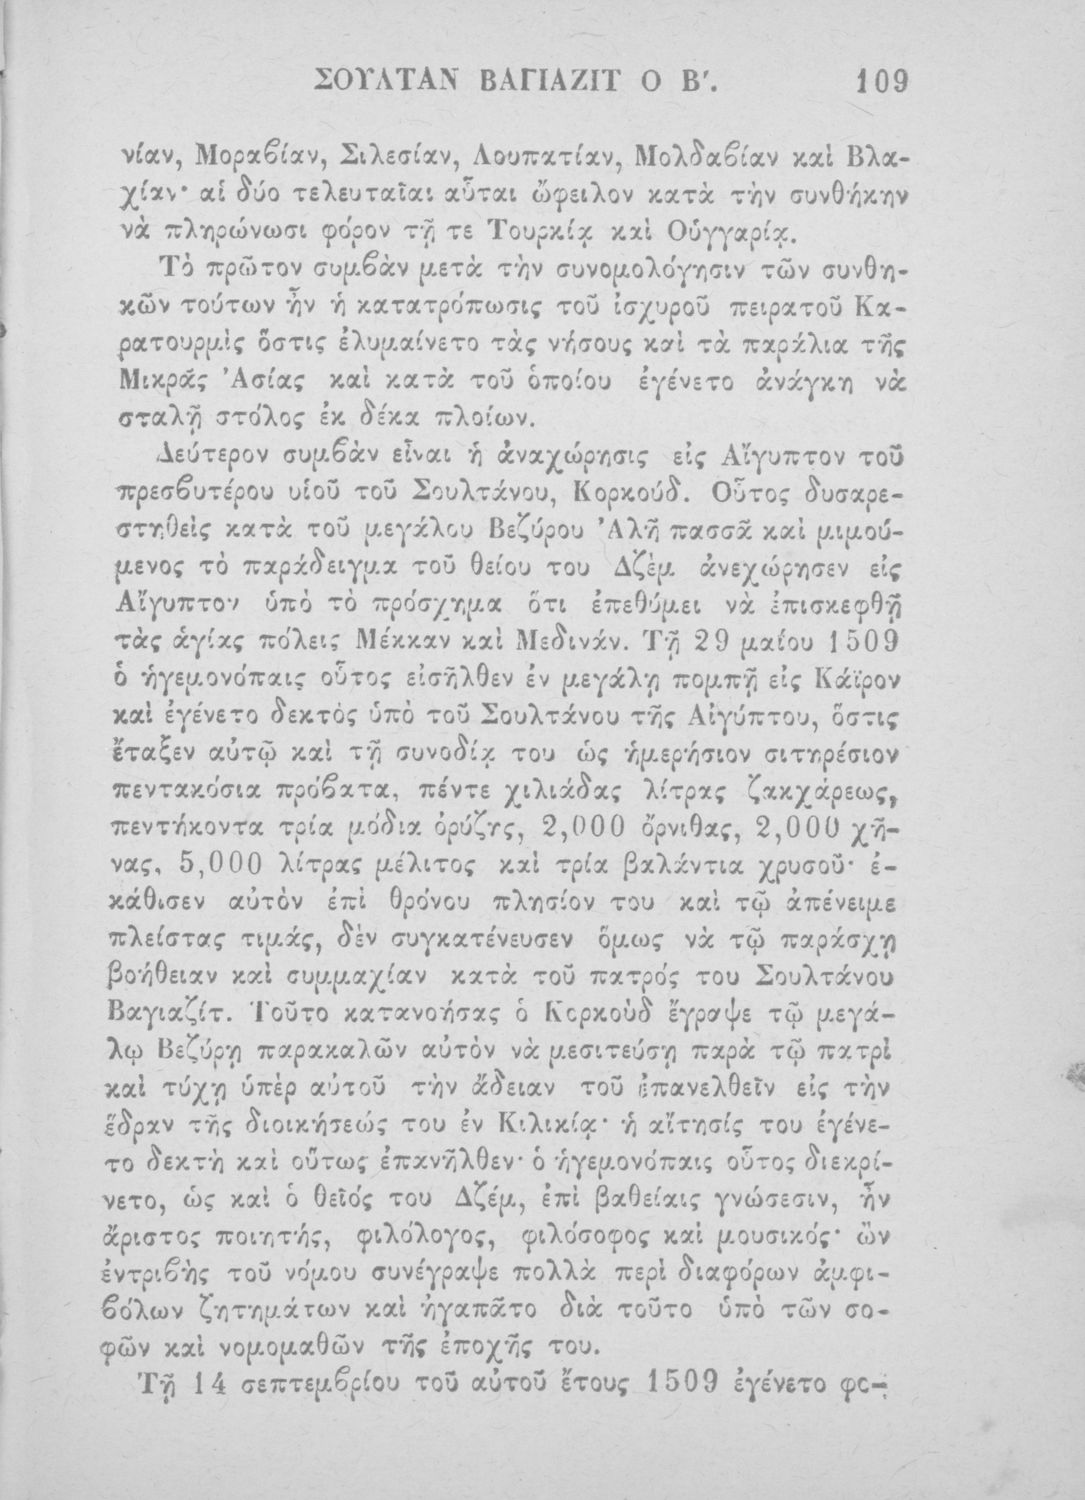 ΣΟΥΛΤΑΝ ΒΑΓΙΑΖΙΤ Ο Β′. 109
νίαν, Μοραϐίαν, Σιλεσίαν, Λουπατίαν, Μολδαϐίαν καὶ Βλα-
χίαν· αἱ δύο τελευταῖαι αὗται ὤφειλον κατὰ τὴν συνθήκην
νὰ πληρώνωσι φόρον τῇ τε Τουρκίᾳ καὶ Οὑγγαρίᾳ.
Τὸ πρῶτον συμϐὰν μετὰ τὴν συνομολόγησιν τῶν συνθη-
κῶν τούτων ἦν ἡ κατατρόπωσις τοῦ ἰσχυροῦ πειρατοῦ Κα-
ρατουρμὶς ὅστις ἐλυμαίνετο τὰς νήσους καὶ τὰ παράλια τῆς
Μικρᾶς Ἀσίας καὶ κατὰ τοῦ ὁποίου ἐγένετο ἀνάγκη νὰ
σταλῇ στόλος ἐκ δέκα πλοίων.
Δεύτερον συμϐὰν εἶναι ἡ ἀναχώρησις εἰς Αἴγυπτον τοῦ
πρεσϐυτέρου υἱοῦ τοῦ Σουλτάνου, Κορκούδ. Οὗτος δυσαρε-
στηθεὶς κατὰ τοῦ μεγάλου Βεζύρου Ἀλῆ πασσᾶ καὶ μιμού-
μενος τὸ παράδειγμα τοῦ θείου του Δζὲμ ἀνεχώρησεν εἰς
Αἴγυπτον ὑπὸ τὸ πρόσχημα ὅτι ἐπεθύμει νὰ ἐπισκεφθῇ
τὰς ἁγίας πόλεις Μέκκαν καὶ Μεδινάν. Τῇ 29 μαΐου 1509
ὁ ἡγεμονόπαις οὗτος εἰσῆλθεν ἐν μεγάλῃ πομπῇ εἰς Κάϊρον
καὶ ἐγένετο δεκτὸς ὑπὸ τοῦ Σουλτάνου τῆς Αἰγύπτου, ὅστις
ἔταξεν αὐτῷ καὶ τῇ συνοδίᾳ του ὡς ἡμερήσιον σιτηρέσιον
πεντακόσια πρόϐατα, πέντε χιλιάδας λίτρας ζακχάρεως,
πεντήκοντα τρία μόδια ὀρύζης, 2,000 ὄρνιθας, 2,000 χῆ-
νας, 5,000 λίτρας μέλιτος καὶ τρία βαλάντια χρυσοῦ· ἐ-
κάθισεν αὐτὸν ἐπὶ θρόνου πλησίον του καὶ τῷ ἀπένειμε
πλείστας τιμάς, δὲν συγκατένευσεν ὅμως νὰ τῷ παράσχῃ
βοήθειαν καὶ συμμαχίαν κατὰ τοῦ πατρός του Σουλτάνου
Βαγιαζίτ. Τοῦτο κατανοήσας ὁ Κορκοὺδ ἔγραψε τῷ μεγά-
λῳ Βεζύρῃ παρακαλῶν αὐτὸν νὰ μεσιτεύσῃ παρὰ τῷ πατρὶ
καὶ τύχῃ ὑπὲρ αὐτοῦ τὴν ἄδειαν τοῦ ἐπανελθεῖν εἰς τὴν
ἕδραν τῆς διοικήσεώς του ἐν Κιλικίᾳ· ἡ αἴτησίς του ἐγένε-
το δεκτὴ καὶ οὕτως ἐπανῆλθεν· ὁ ἡγεμονόπαις οὗτος διεκρί-
νετο, ὡς καὶ ὁ θεῖός του Δζέμ, ἐπὶ βαθείαις γνώσεσιν, ἦν
ἄριστος ποιητής, φιλόλογος, φιλόσοφος καὶ μουσικός· ὢν
ἐντριϐὴς τοῦ νόμου συνέγραψε πολλὰ περὶ διαφόρων ἀμφι-
ϐόλων ζητημάτων καὶ ἠγαπᾶτο διὰ τοῦτο ὑπὸ τῶν σο-
φῶν καὶ νομομαθῶν τῆς ἐποχῆς του.
Τῇ 14 σεπτεμϐρίου τοῦ αὐτοῦ ἔτους 1509 ἐγένετο φο-